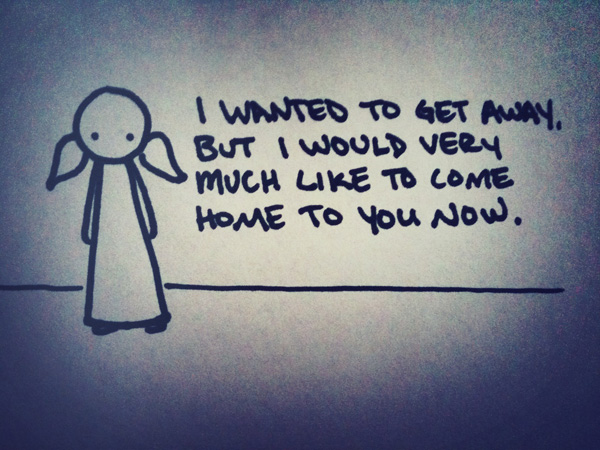 I WANTED TO GET AWAY.
BUT I WOULD VERY
MUCH LIKE TO COME
HOME TO YOU NOW.